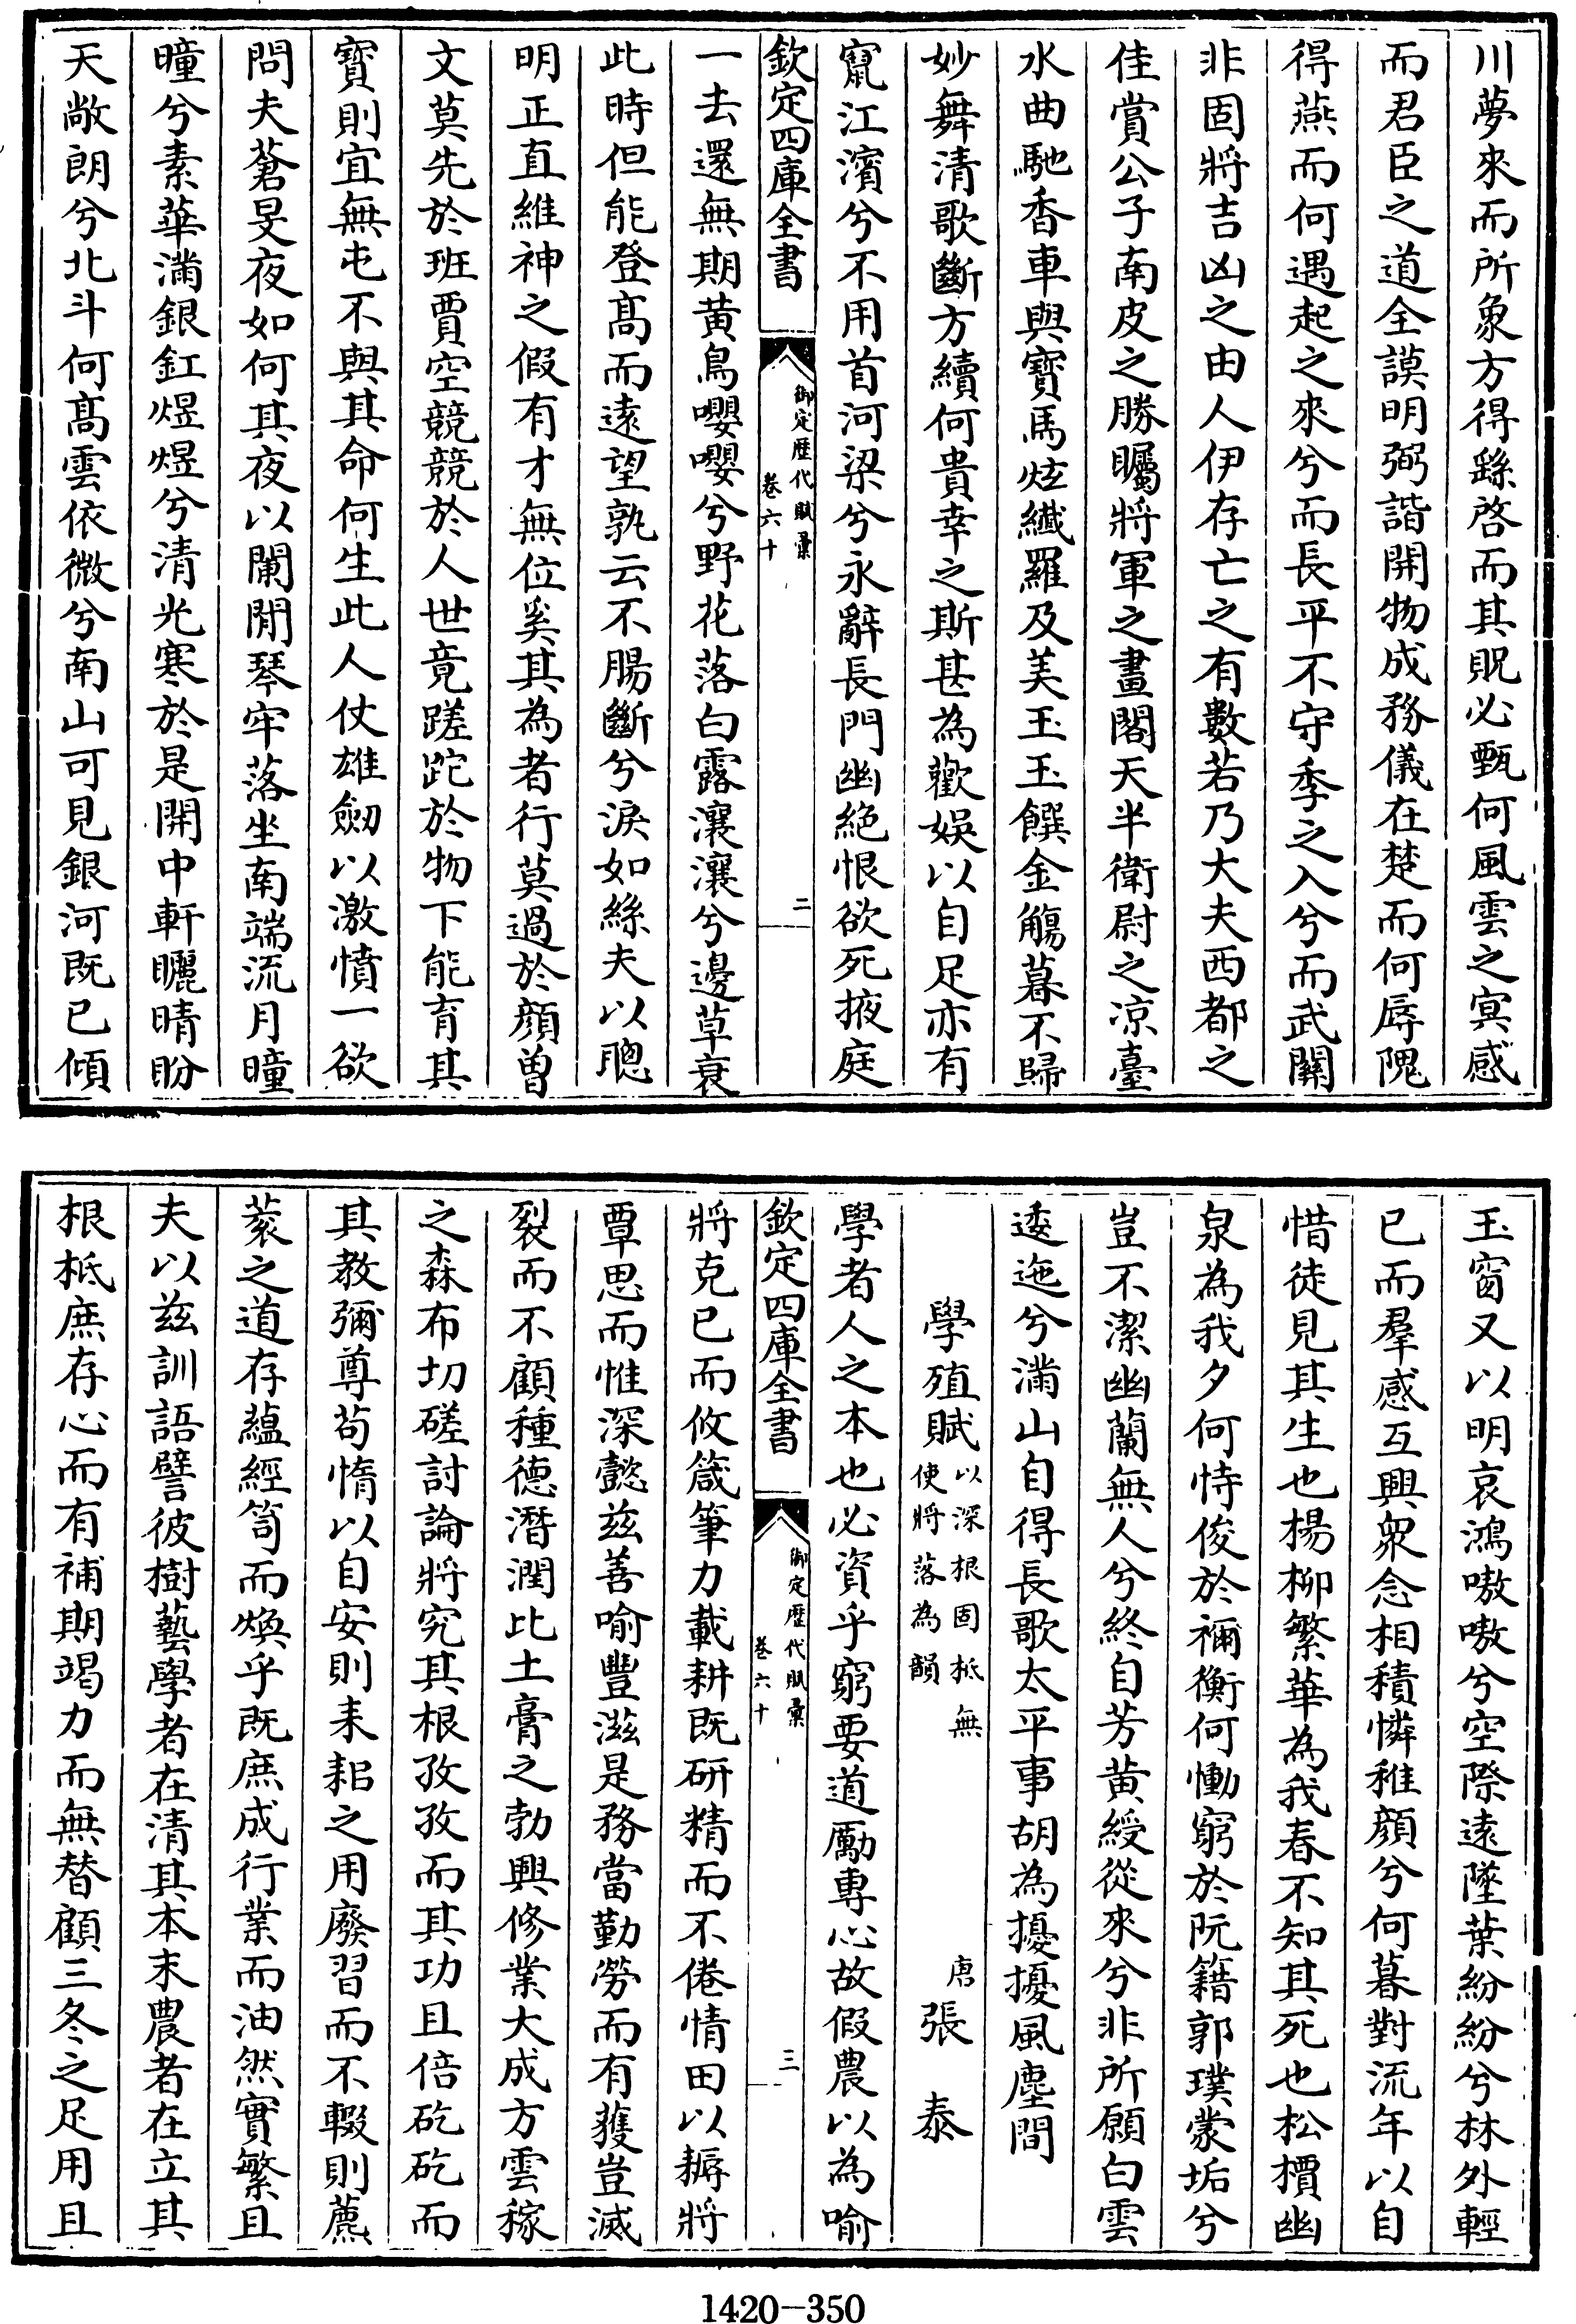 川夢來而所象方得繇啓而其貺必甄何風雲之㝠感
而君臣之道全謨明弼諧開物成務儀在楚而何辱隗
得燕而何遇起之來兮而長平不守季之入兮而武關
非固將吉凶之由人伊存亡之有數若乃大夫西都之
佳賞公子南皮之勝矚將軍之畫閣天半衛尉之凉臺
水曲馳香車與寳馬炫纎羅及美玉玉饌金觴暮不歸
妙舞清歌斷方續何貴幸之斯甚為歡娛以自足亦有
竄江濱兮不用首河梁兮永辭長門幽絶恨欲死掖庭
欽定四庫全書
御定歴代賦彙
卷六十
二
一去還無期黄鳥嚶嚶兮野花落白露瀼瀼兮邊草衰
此時但能登髙而遠望孰云不腸斷兮淚如絲夫以聰
明正直維神之假有才無位奚其為者行莫過於顔曽
文莫先於班賈空競競於人世竟蹉跎於物下能育其
寳則宜無屯不與其命何生此人仗雄劒以激憤一欲
問夫蒼旻夜如何其夜以闌閒琴牢落坐南端流月曈
曈兮素華滿銀釭煜煜兮清光寒於是開中軒矖晴盼
天敞朗兮北斗何髙雲依微兮南山可見銀河既已傾
玉窗又以明哀鴻嗷嗷兮空際遠墜葉紛紛兮林外輕
已而羣感互興衆念相積憐稚顔兮何暮對流年以自
惜徒見其生也楊柳繁華為我春不知其死也松檟幽
泉為我夕何恃俊於禰衡何慟窮於阮籍郭璞蒙垢兮
豈不潔幽蘭無人兮終自芳黄綬從來兮非所願白雲
逶迤兮滿山自得長歌太平事胡為擾擾風塵間
學殖賦
以深根固柢無
使將落為韻
唐
張泰
學者人之本也必資乎窮要道勵專心故假農以為喻
欽定四庫全書
御定歴代賦彙
卷六十
三
將克已而攸箴筆力載耕既研精而不倦情田以耨將
覃思而惟深懿兹善喻豐滋是務當勤勞而有獲豈滅
裂而不顧種德潛潤比土膏之勃興修業大成方雲稼
之森布切磋討論將究其根孜孜而其功且倍矻矻而
其教彌尊茍惰以自安則耒耜之用廢習而不輟則藨
蓘之道存藴經笥而煥乎既庶成行業而油然實繁且
夫以兹訓語譬彼樹藝學者在清其本末農者在立其
根柢庶存心而有補期竭力而無替顧三冬之足用且
1420-350